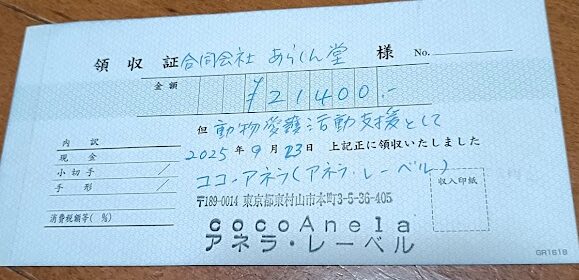 領収証 合同会社 あらくん堂 様 No.
金額 ¥21400.-
但 動物愛護活動支援として
内訳
2025年9月23日 上記正に領収いたしました
現金
小切手 /
手形 /
ココ-アネラ(アネラ・レーベル)
消費税額等( %)
〒189-0014 東京都東村山市本町3-5-36-405
収入印紙
cocoAnela
アネラ・レーベル
GR1618